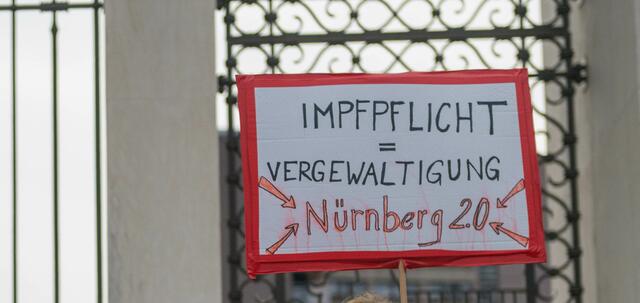 IMPFPFLICHT
=
VERGEWALTIGUNG
Nürnberg 2.0